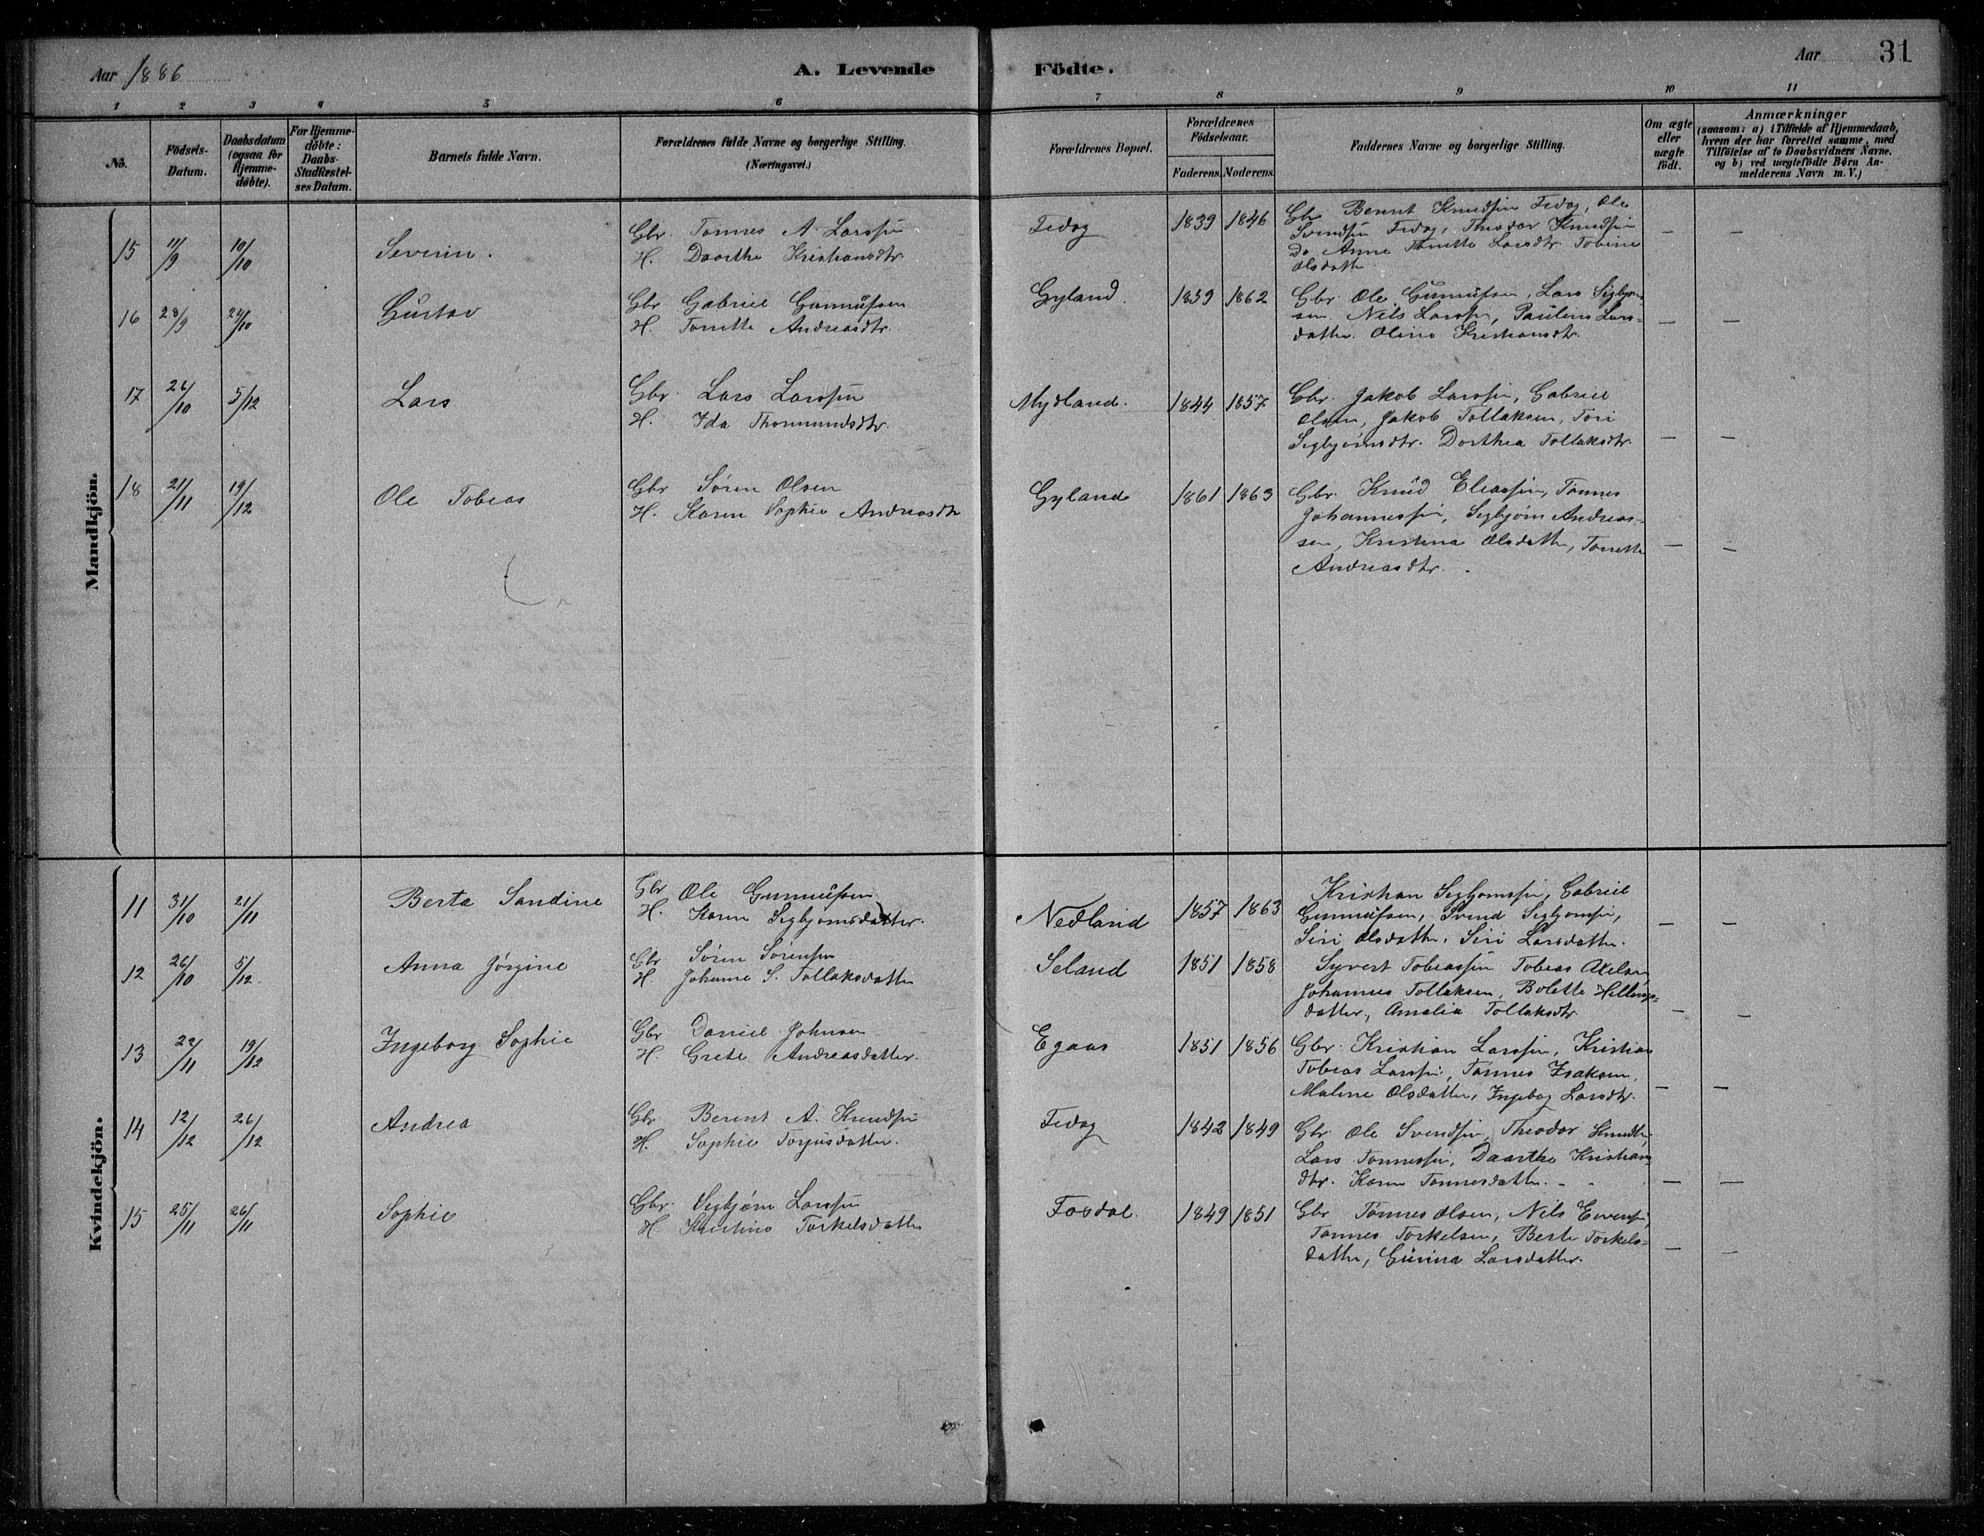 Aar 1886 A. Levende Födte. Aar 31
1 2 3 4 5 6 7 8 9 10 11
No. Födsels-Datum. Daabsdatum (ogsaa for Hjemmedöbte). For Hjemmedöbte: Daabs-Stadfæstelses Datum. Barnets fulde Navn. Forældrenes fulde Navne og borgerlige Stilling. (Næringsvei.) Forældrenes Bopæl. Forældrenes Födselsaar. Faderens. Moderens. Faddernes Navne og borgerlige Stilling. Om ægte eller uægte födt. Anmærkninger (saasom: a) i Tilfælde af Hjemmedaab, hvem der har forrettet samme, med Tilföielse af to Daabsvidners Navne. og b) ved uægtefödte Börn Anmelderens Navn m. V.)
Mandkjön.
15 11/9 10/10 Severin. Gbr. Tonnes A. Larssen Fedog 1839 1846 Gbr Bernt Knudsen Fedog, Ole
H. Daarthe Kristiansdtr Svendsen Fedog, Theodor Knudsen
Do Anne Tonette Larsdtr Tobine
Olsdatter — —
16 28/9 24/10 Gustav Gbr Gabriel Gunnufsen Gyland. 1839 1862 Gbr Ole Gunnufsen, Lars Sigbjørn
H. Tonette Andreasdtr. sen. Nils Larssen, Pauline Lars-
datter. Oline Kristiansdtr. — —
17 26/10 5/12 Lars Gbr. Lars Larssen Mydland. 1844 1857 Gbr. Jakob Larssen, Gabriel
H. Ida Thormundsdtr. Olsen, Jakob Tollaksen, Tori
Sigbjørnsdtr. Dorthea Tollaksdtr. — —
18 21/11 19/12 Ole Tobias Gbr Søren Olsen Gyland 1861 1863 Gbr. Knud Eliassen, Tonnes
H. Karen Sophie Andreasdtr Johannessen, Sigbjørn Andreas-
sen, Kristina Olsdatter, Tonette — —
Andreasdtr.
Kvindekjön.
11 31/10 21/11 Berta Sandine Gbr Ole Gunnufsen Nedland 1857 1863 Kristian Sigbjornssen, Gabriel
H. Karen Sigbjornsdatter. Gunnufsen, Svend Sigbjornssen,
Siri Olsdatter. Siri Larsdatter. — —
12 26/10 5/12 Anna Jørgine Gbr Søren Sørensen Seland 1851 1858 Syvert Tobiassen Tobias Axelsen
H. Johanne S. Tollaksdatter Johannes Tollaksen, Bolette
datter, Amalia Tollaksdtr. — —
13 22/11 19/12 Ingeborg Sophie Gbr Daniel Johnsen Egaas 1851 1856 Gbr. Kristian Larssen, Kristian
H Grete Andreasdatter. Tobias Larssen, Tonnes Isaksen.
Malene Olsdatter, Ingeborg Larsdtr. — —
14 12/12 26/12 Andrea Gbr Berent A. Knudsen Fedog 1842 1849 Gbr. Ole Svendsen, Theodor Knudsen
H. Sophie Torjusdatter. Lars Tonnessen, Daarthe Kristians-
dtr. Karen Tonnesdatter. — —
15 25/11 26/11 Sophie Gbr. Sigbjørn Larssen Fosdal. 1849 1851 Gbr Tønnes Olsen, Nils
H. Kristine Torkelsdatter Tonnes Torkelsen, Berte Torkels-
datter, Gunna Larsdatter. — —